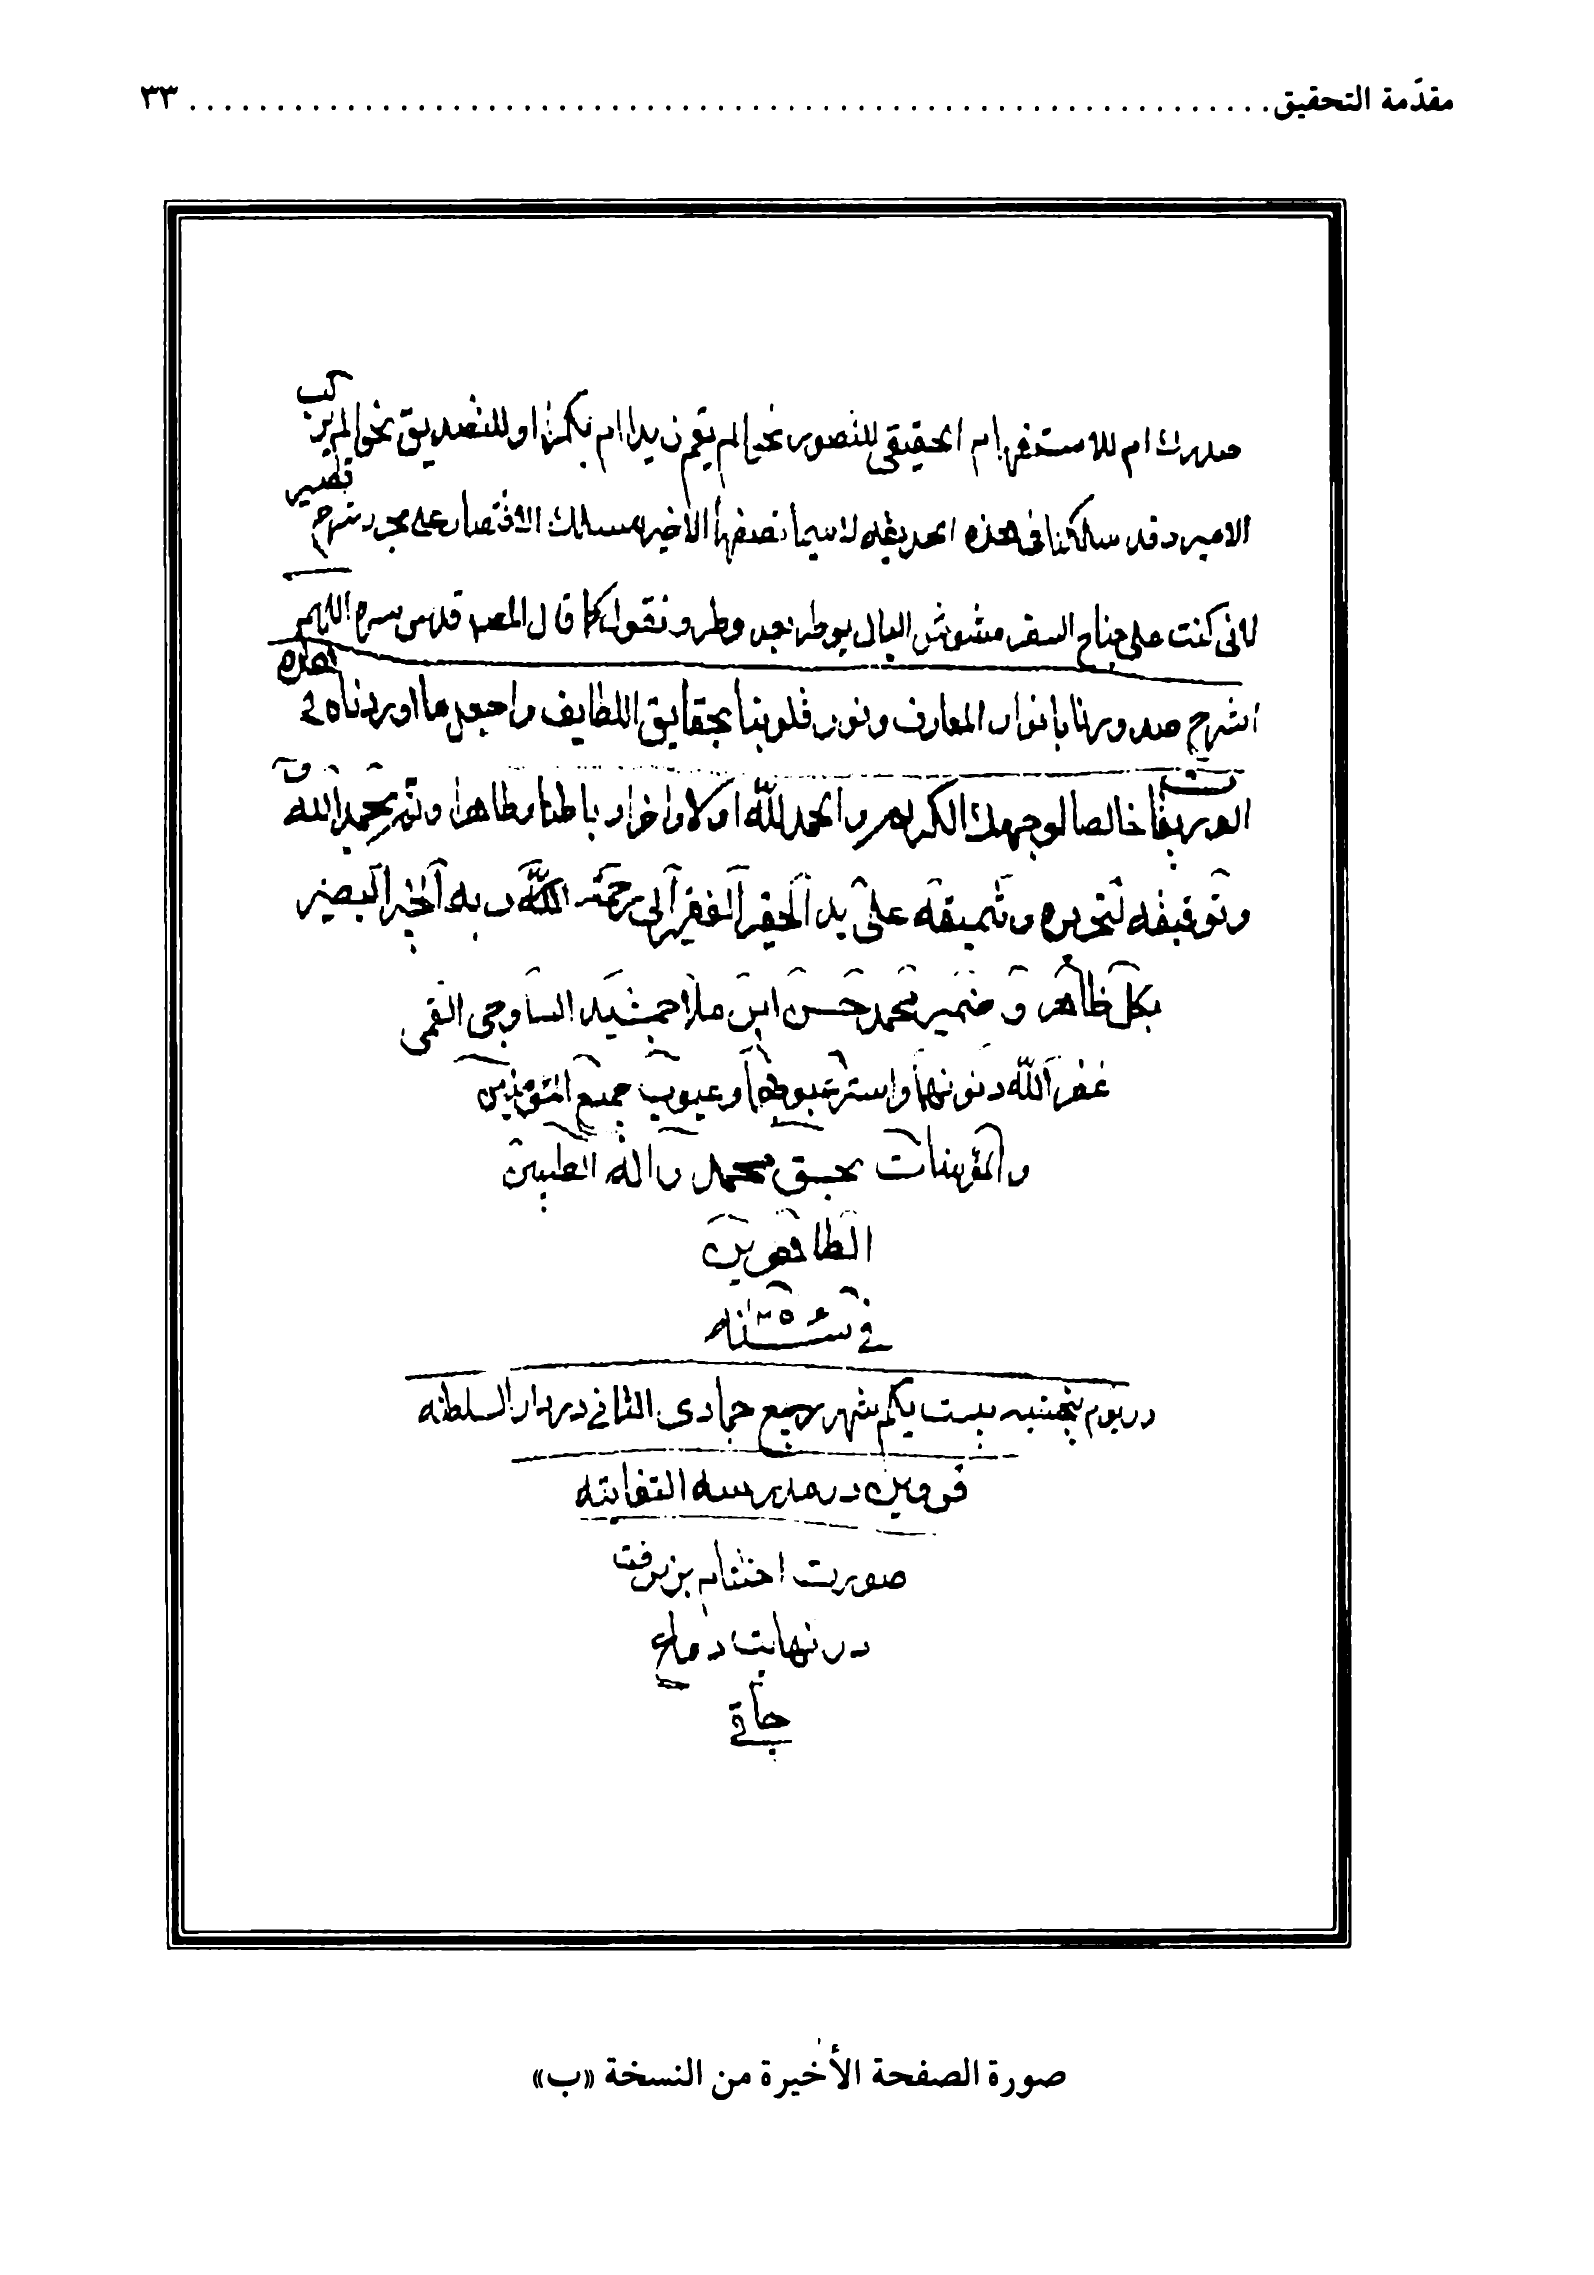 مقدّمة التحقيق ........ ٣٣
صدرك ام للاستفهام الحقيقي للتصور نحو الم يقم زيد ام بكر او للتصديق نحو الم يركب
الامير وقد سلكنا في هذه الحديقه لا سيما نصفها الاخير مسلك الاقتصار على مجرد شرح قصير
لاني كنت على جناح السفر مشوش البال ونقول كما قال المصـ قدس سره اللهم
اشرح صدورنا بانوار المعارف ونور قلوبنا بحقايق اللطايف واجعل ما اوردناه في
خالصا لوجهك الكريم والحمد لله اولا واخرا وباطنا وظاهرا وتم بحمد الله
وتوفيقه تحريره وتنميقه على يد الحقير الفقير الى رحمة الله ربه الخبير البصير
بكل ظاهر و ضمير محمد حسن ابن ملا جمشيد الساوجي القمي
غفر الله ذنوبهما واستر عيوبهما وعيوب جميع المؤمنين
والمؤمنات بحق محمد واله الطيبين
الطاهرين
في سنه
در يوم پنجشنبه بيست يكم شهر جمادى الثاني در دار السلطنه
قزوين در مدرسه
صورت اختتام پزيرفت
در نهايت دماغ
چاقي
صورة الصفحة الأخيرة من النسخة «ب»